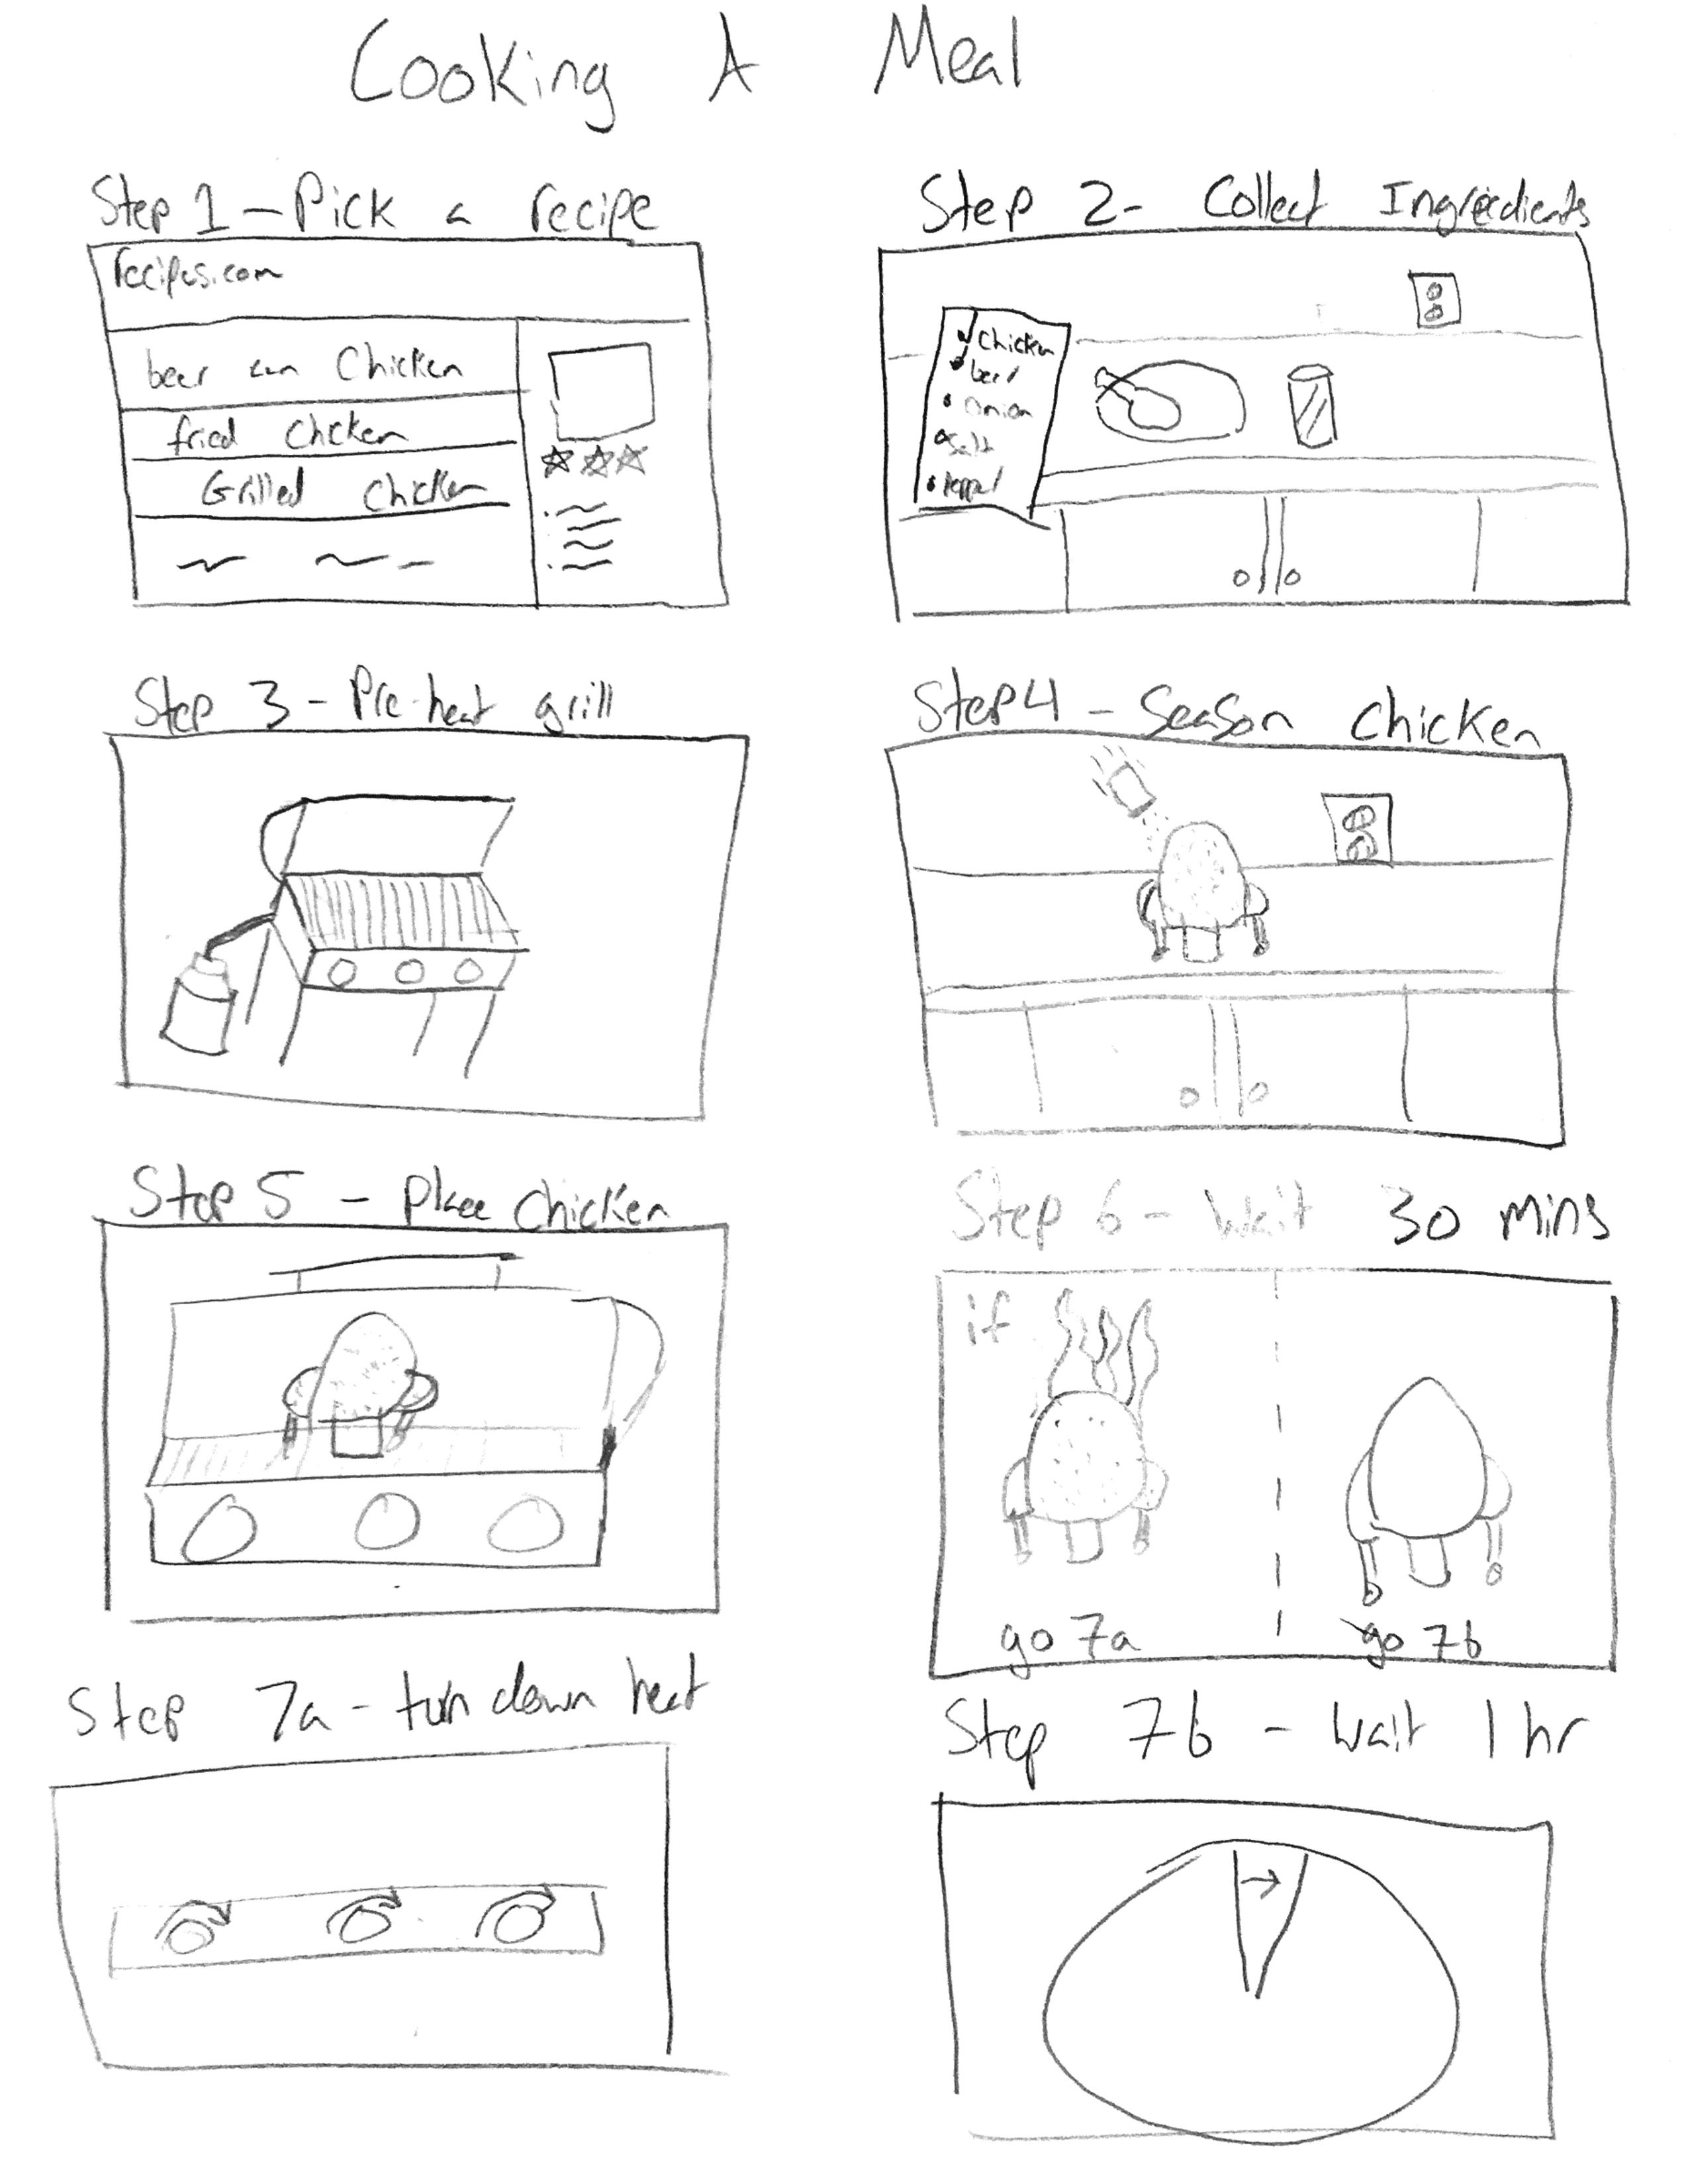 Cooking A Meal
Step 1 - Pick a recipe
recipes.com
beer can Chicken
fried Chicken
Grilled Chicken
Step 2- Collect Ingredients
Chicken
beer
Onion
Salt
Pepper
Step 3 - Pre-heat grill
Step 4 - Season Chicken
Step 5 - Place Chicken
Step 6 - Wait 30 mins
if
go 7a
go 7b
Step 7a - turn down heat
Step 7b - Wait 1 hr